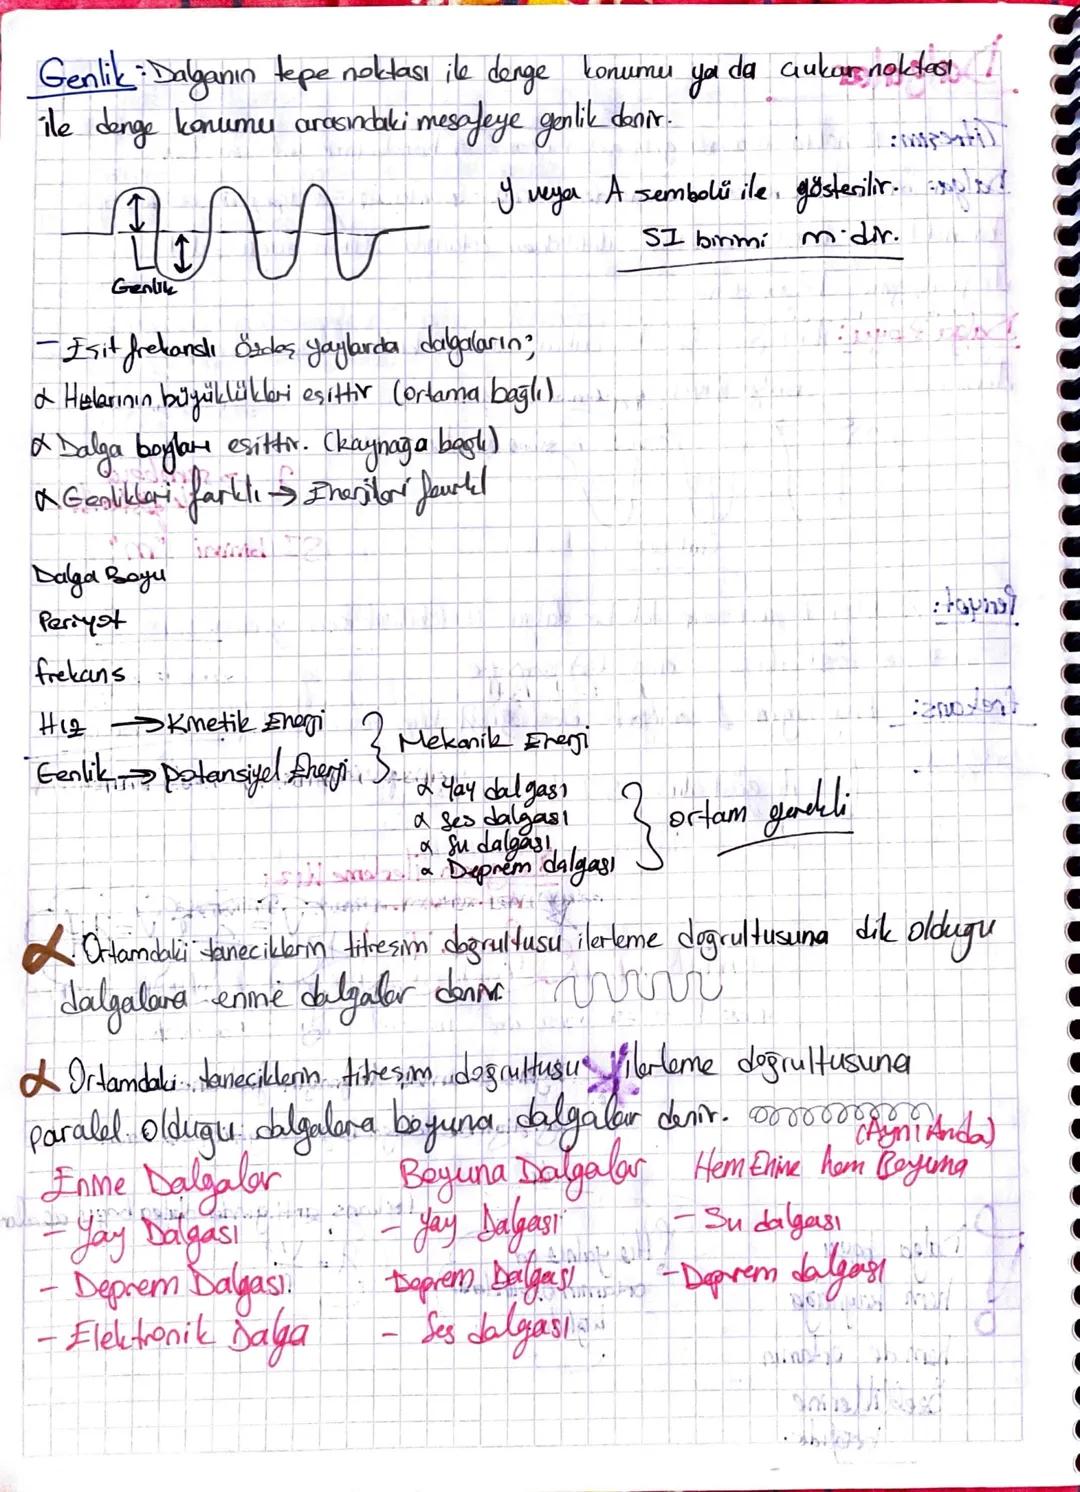 Genlik: Dalganın tepe noktası ile denge konumu ya da çukur noktası
ile denge konumu arasındaki mesafeye genlik denir.
y veya A sembolü ile gösterilir.
SI birimi m'dir.
Genlik
- Eşit frekanslı özdeş yaylarda dalgaların;
α Hızlarının büyüklükleri eşittir (ortama bağlı)
α Dalga boyları eşittir. (kaynağa bağlı)
α Genlikleri farklı → Enerjileri farklı
Dalga Boyu
Periyot
frekans
Hız → Kinetik Enerji
Genlik → potansiyel Enerji
Mekanik Enerji
α Yay dalgası
α ses dalgası
α Su dalgası
α Deprem dalgası
ortam gerekli
α Ortamdaki taneciklerin titreşim doğrultusu ilerleme doğrultusuna dik olduğu
dalgalara enine dalgalar denir.
α Ortamdaki taneciklerin titreşim doğrultusu ilerleme doğrultusuna
paralel olduğu dalgalara boyuna dalgalar denir.
(Aynı Anda)
Enine Dalgalar Boyuna Dalgalar Hem Enine hem Boyuna
- Yay Dalgası - Yay Dalgası - Su dalgası
- Deprem Dalgası. Deprem Dalgası - Deprem dalgası
- Elektronik Dalga - Ses dalgası